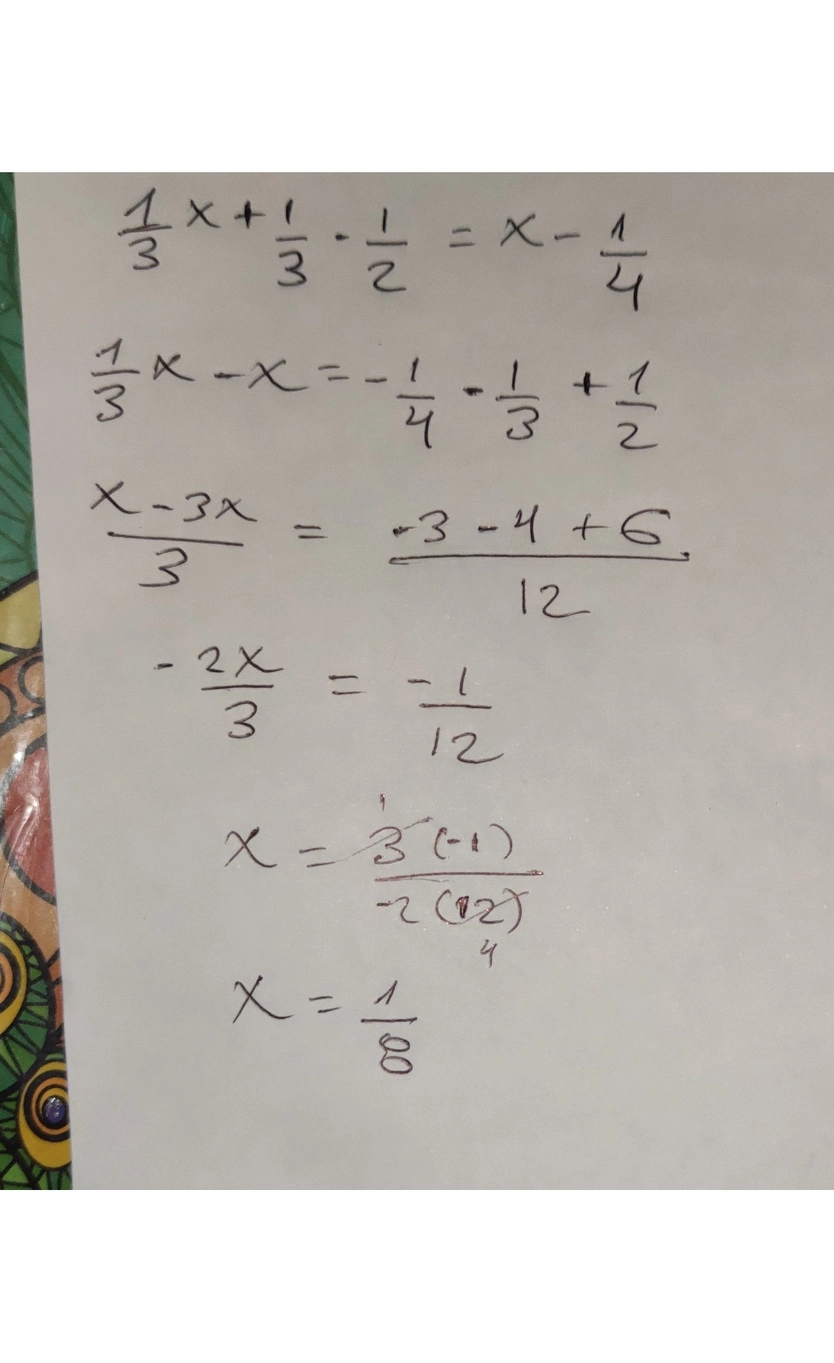 1/3 x + 1/3 - 1/2 = x - 1/4
1/3 x - x = - 1/4 - 1/3 + 1/2
(x - 3x)/3 = (-3 - 4 + 6)/12
- 2x/3 = -1/12
x = 1 3(-1)/-2(12) 4
x = 1/8